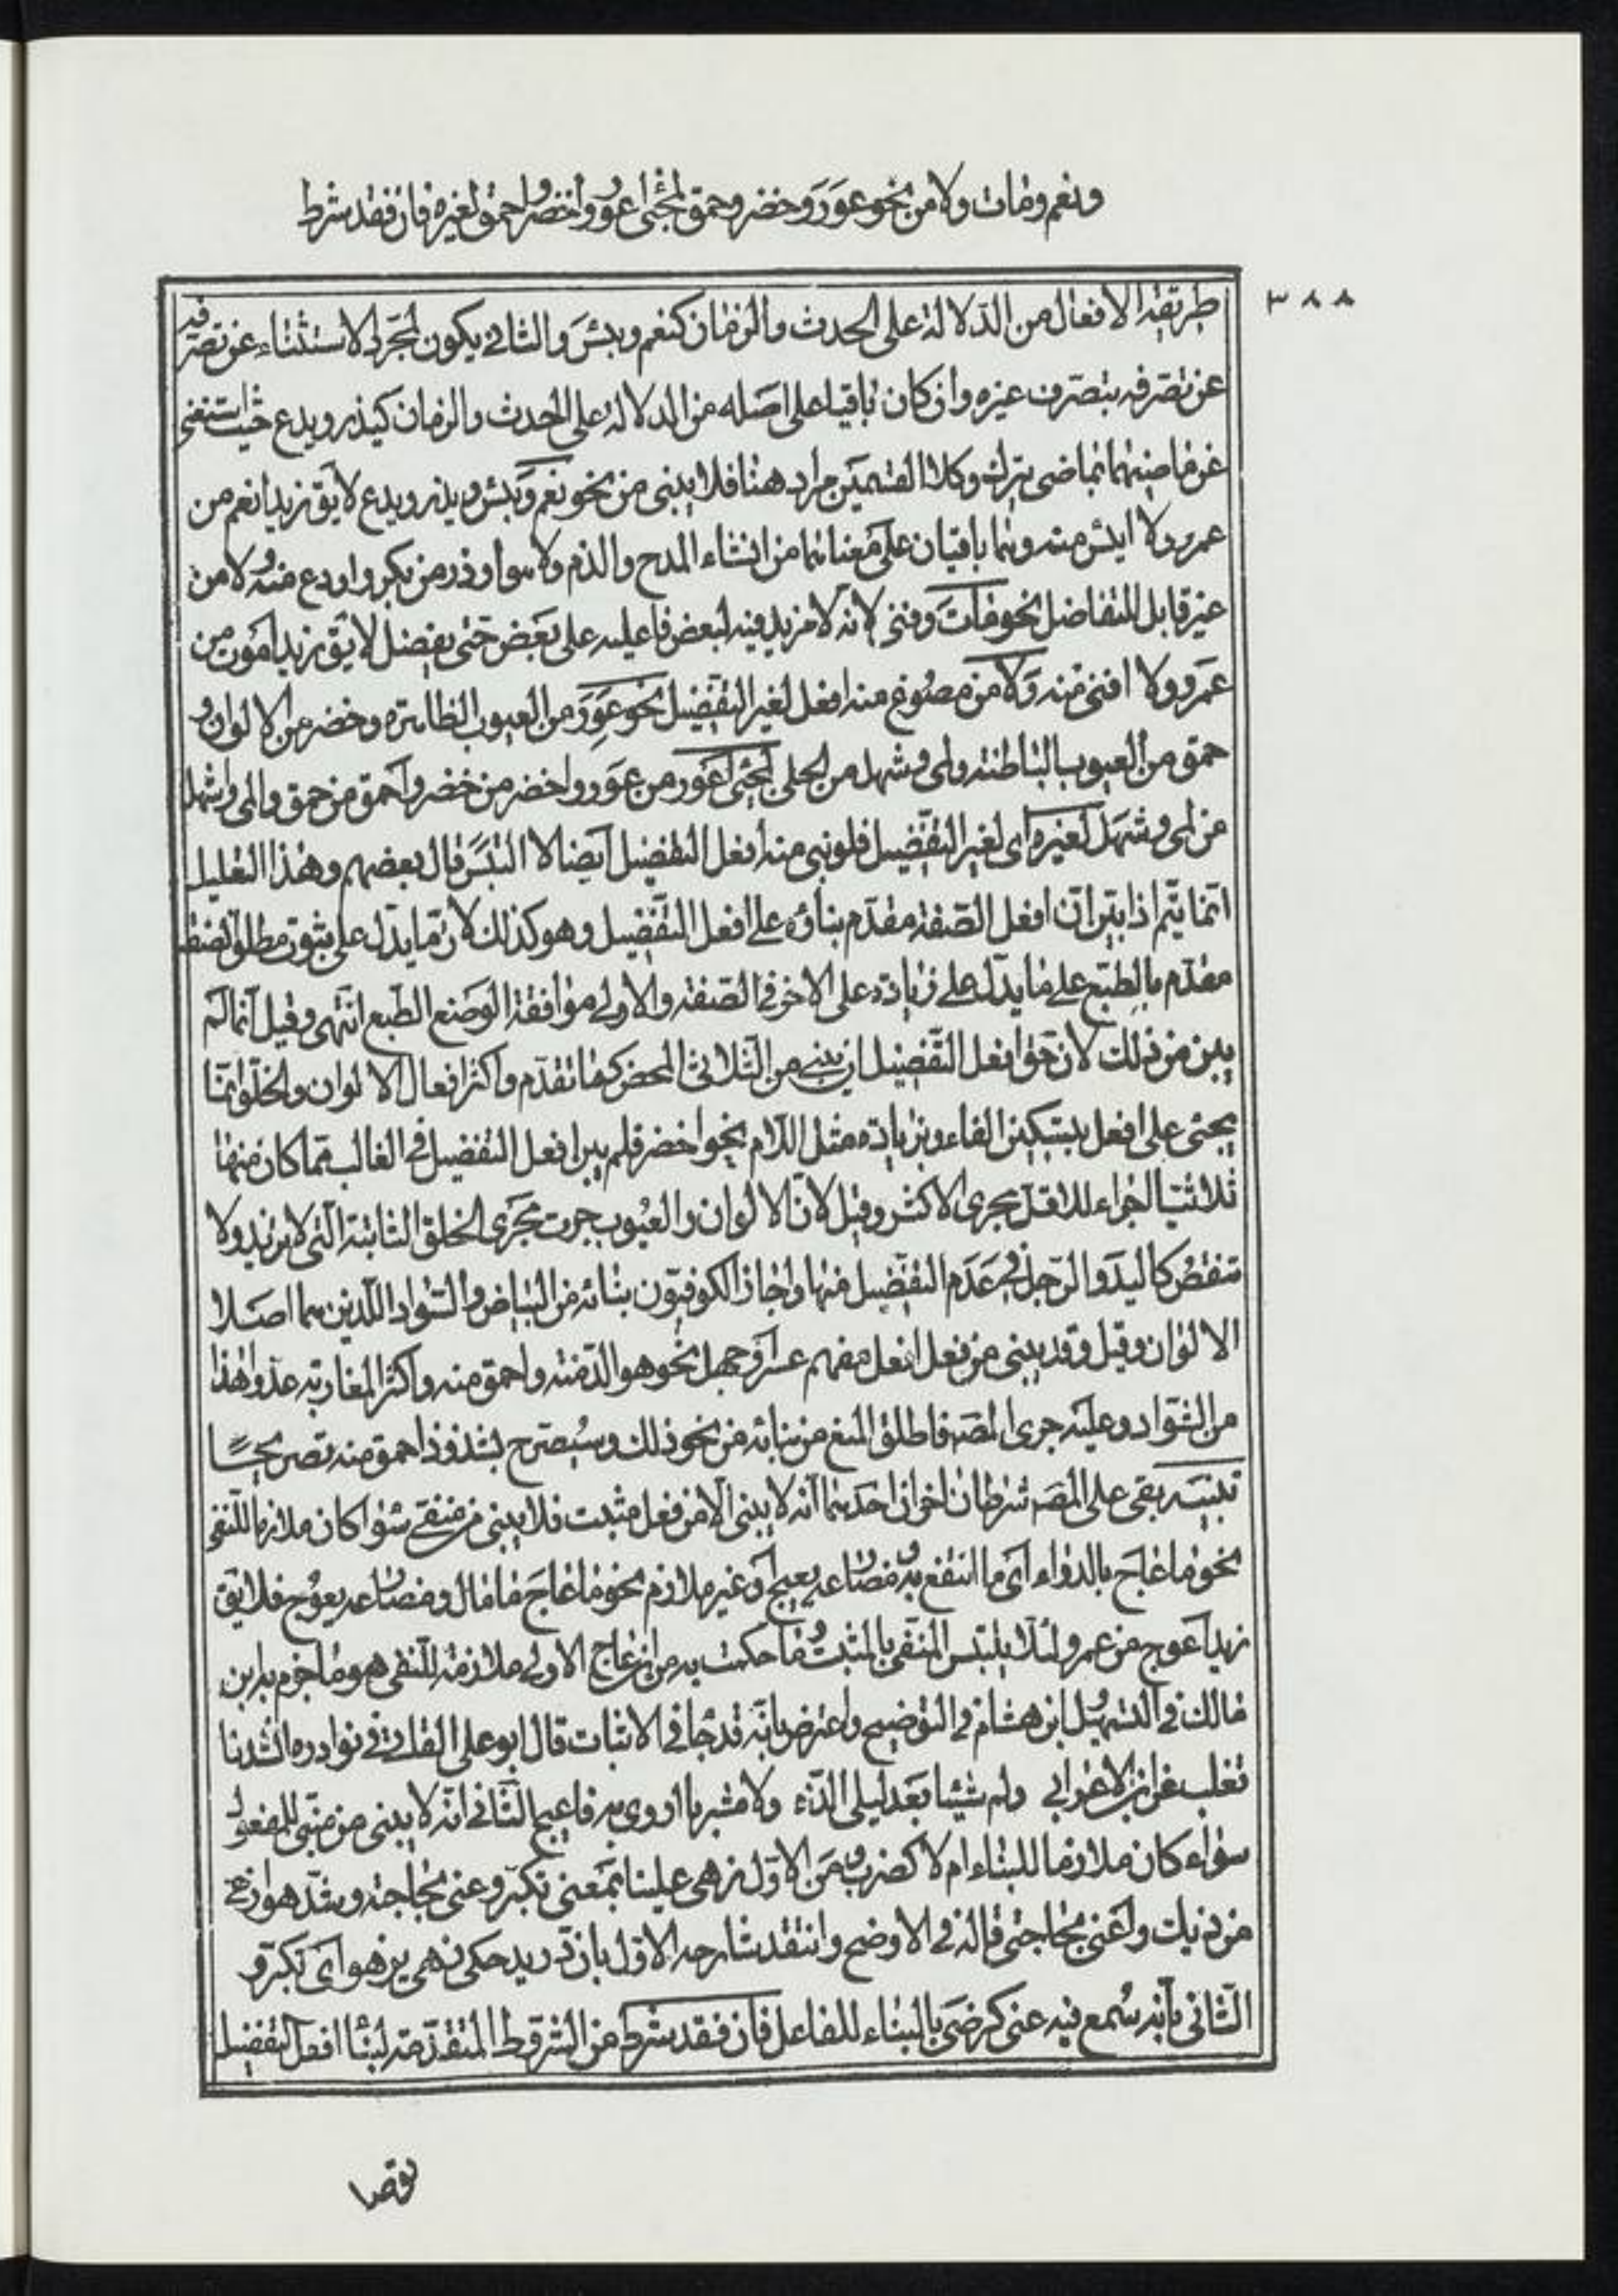 ونعم ومات ولا من نحو عور وخضر وحمق لمجئ اعور واخضر واحمق لغيره فان فقد شرط
٣٨٨
طريقه الافعال من الدلالة على الحدث والزمان كنعم وبئس والثانى يكون لمجرد الاستثناء عن تصرفه
عن تصرفه بتصرف غيره وان كان باقيا على اصله من الدلالة على الحدث والزمان كيذر ويدع حيث استغنى
عن ماضيهما بماضى يترك وكلا القسمين مراد هنا فلا يبنى من نحو نعم وبئس ويذر ويدع لا يق زيد انعم من
عمرو ولا ابئس منه وهما باقيان على معناهما من انشاء المدح والذم ولا هو اوذر من بكر واودع منه ولا من
غير قابل للتفاضل نحو مات وفنى لانه لا مزيد فيه لبعض فاعليه على بعض حتى يفضل لا يق زيد اموت من
عمرو ولا افنى منه ولا من مصوغ منه افعل لغير التفضيل نحو عور من العيوب الظاهرة وخضر من الالوان و
حمق من العيوب الباطنة ولمى وشهل من الحلى لمجئ اعور من عور واخضر من خضر واحمق من حمق والمى واشهل
من لمى وشهل لغيره اى لغير التفضيل فلو بنى منه افعل التفضيل ايضا لا التبس قال بعضهم وهذا التعليل
انما يتم اذا بين ان افعل الصفة مقدم بناؤه على افعل التفضيل وهو كذلك لان ما يدل على ثبوت مطلق الصفة
مقدم بالطبع على ما يدل على زيادة على الاخر فى الصفة والاولى موافقة الوضع الطبع انتهى وقيل انما لم
يبن من ذلك لان حق افعل التفضيل ان يبنى من الثلاثى المحض كما تقدم واكثر افعال الالوان والخلق انما
يجئ على افعل بتسكين الفاء وبزيادة مثل اللام نحو اخضر فلم يبن افعل التفضيل فى الغالب مما كان منها
ثلاثيا اجراء للاقل مجرى الاكثر وقيل لان الالوان والعيوب جرت مجرى الخلق الثابتة التى لا تزيد ولا
تنقص كاليد والرجل فى عدم التفضيل منها واجاز الكوفيون بنائه من البياض والسواد اللذين هما اصلا
الالوان وقيل وقد يبنى من فعل افعل مفهم عسر او جهل نحو هو الد منه واحمق منه واكثر المغاربة عدوا هذا
من الشواد وعليه جرى المصّ فاطلق المنع من بنائه من نحو ذلك وسيصرح بشذوذ احمق منه تصريحا
تنبيه بقى على المصّ شرطان اخران احدهما انه لا يبنى الا من فعل مثبت فلا يبنى من منفى سواء كان ملازما للنفى
نحو ما عاج بالدواء اى ما انتفع به ومضارعه يعيج او غير ملازم نحو ما عاج ما مال ومضارعه يعوج فلا يق
زيد اعوج من عمرو لئلا يلتبس المنفى بالمثبت وما حكمت به من ان عاج الاولى ملازمة للنفى هو ما جزم به ابن
مالك فى التسهيل وابن هشام فى التوضيح واعترض بانه قد جا فى الاثبات قال ابو على القالى فى نوادره انشدنا
ثعلب عن ابن الاعرابى ولم ... شيئا بعد ليلى الذه ولا مشربا اروى به فاعيج الثانى انه لا يبنى من مبنى للمفعول
سواء كان ملازما للبناء ام لا كضرب ومن الاول زهى علينا بمعنى تكبر وعنى بحاجته وشذ هو ازهى
من ديك واعنى بحاجتى قاله فى الاوضح وانتقد شارحه الاول بان ابن دريد حكى زهى يزهو اى تكبر و
الثانى بانه سمع فيه عنى كرضى بالبناء للفاعل فان فقد شرط من الشروط المتقدمة لبناء افعل التفضيل
توصل